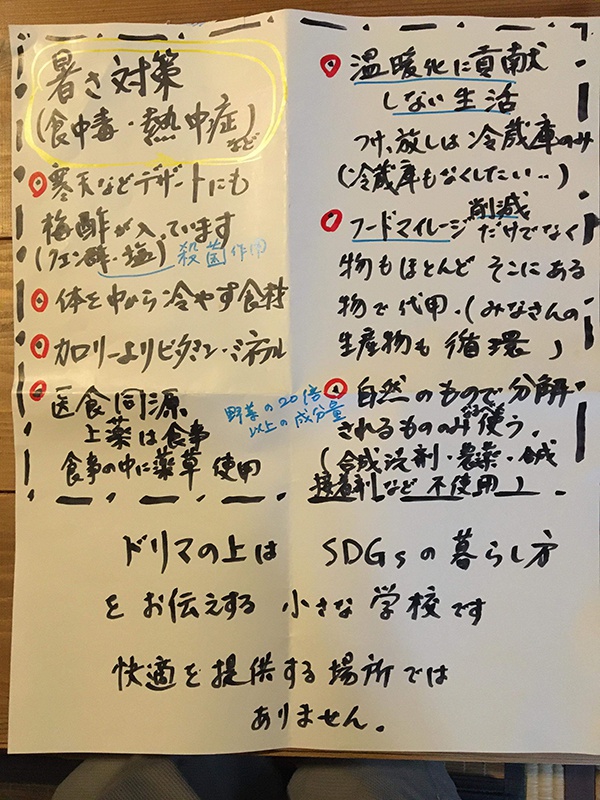 暑さ対策
(食中毒・熱中症)など
寒天などデザートにも
梅酢が入っています
(クエン酸・塩) 殺菌作用
体を中から冷やす食材
カロリーよりビタミン・ミネラル
医食同源
上薬は食事
食事の中に薬草使用
野菜の20倍
以上の成分量
温暖化に貢献
しない生活
つけっ放しは冷蔵庫のみ
(冷蔵庫もなくしたい‥)
フードマイレージ削減だけでなく
物もほとんどそこにある
物で代用.(みなさんの
生産物も循環)
自然のもので分解
されるもののみ使う.
(合成洗剤・農薬・合成
接着剤など不使用)
ドリマの上は SDGsの暮らし方
をお伝えする 小さな学校です
快適を提供する場所では
ありません.